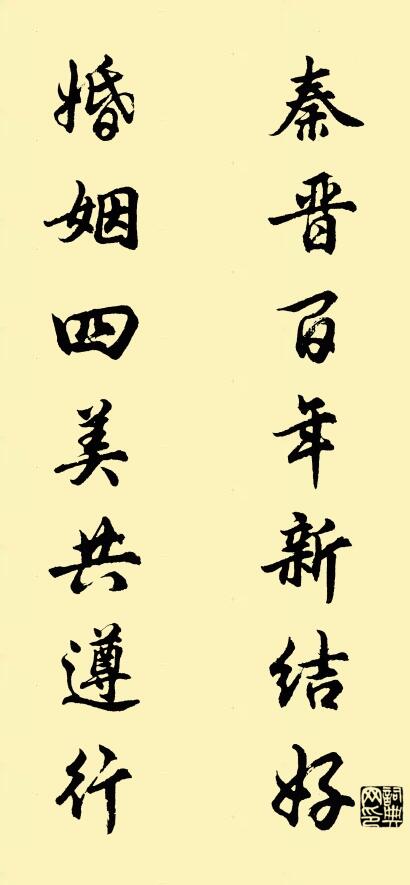 秦晋百年新结好
婚姻四美共遵行
词典网印